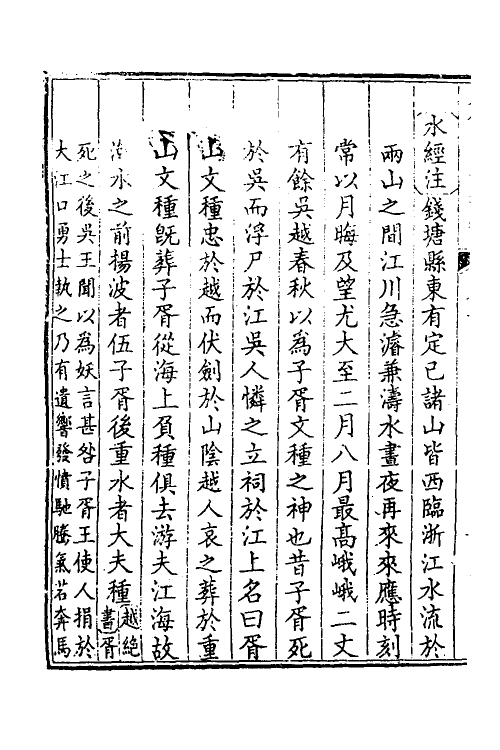 水經注錢塘縣東有定已諸山皆西臨浙江水流於
兩山之間江川急濬兼濤水晝夜再來來應時刻
常以月晦及望尤大至二月八月最髙峨峨二丈
有餘吳越春秋以為子胥文種之神也昔子胥死
於吳而浮尸於江吳人憐之立祠於江上名曰胥
山文種忠於越而伏劍於山陰越人哀之葬於重
山文種旣葬子胥從海上負種俱去游夫江海故
潮水之前楊波者伍子胥後重水者大夫種越絕書胥
死之後吳王聞以為妖言甚咎子胥王使人捐於
大江口勇士執之乃有遺響發憤馳騰氣若奔馬